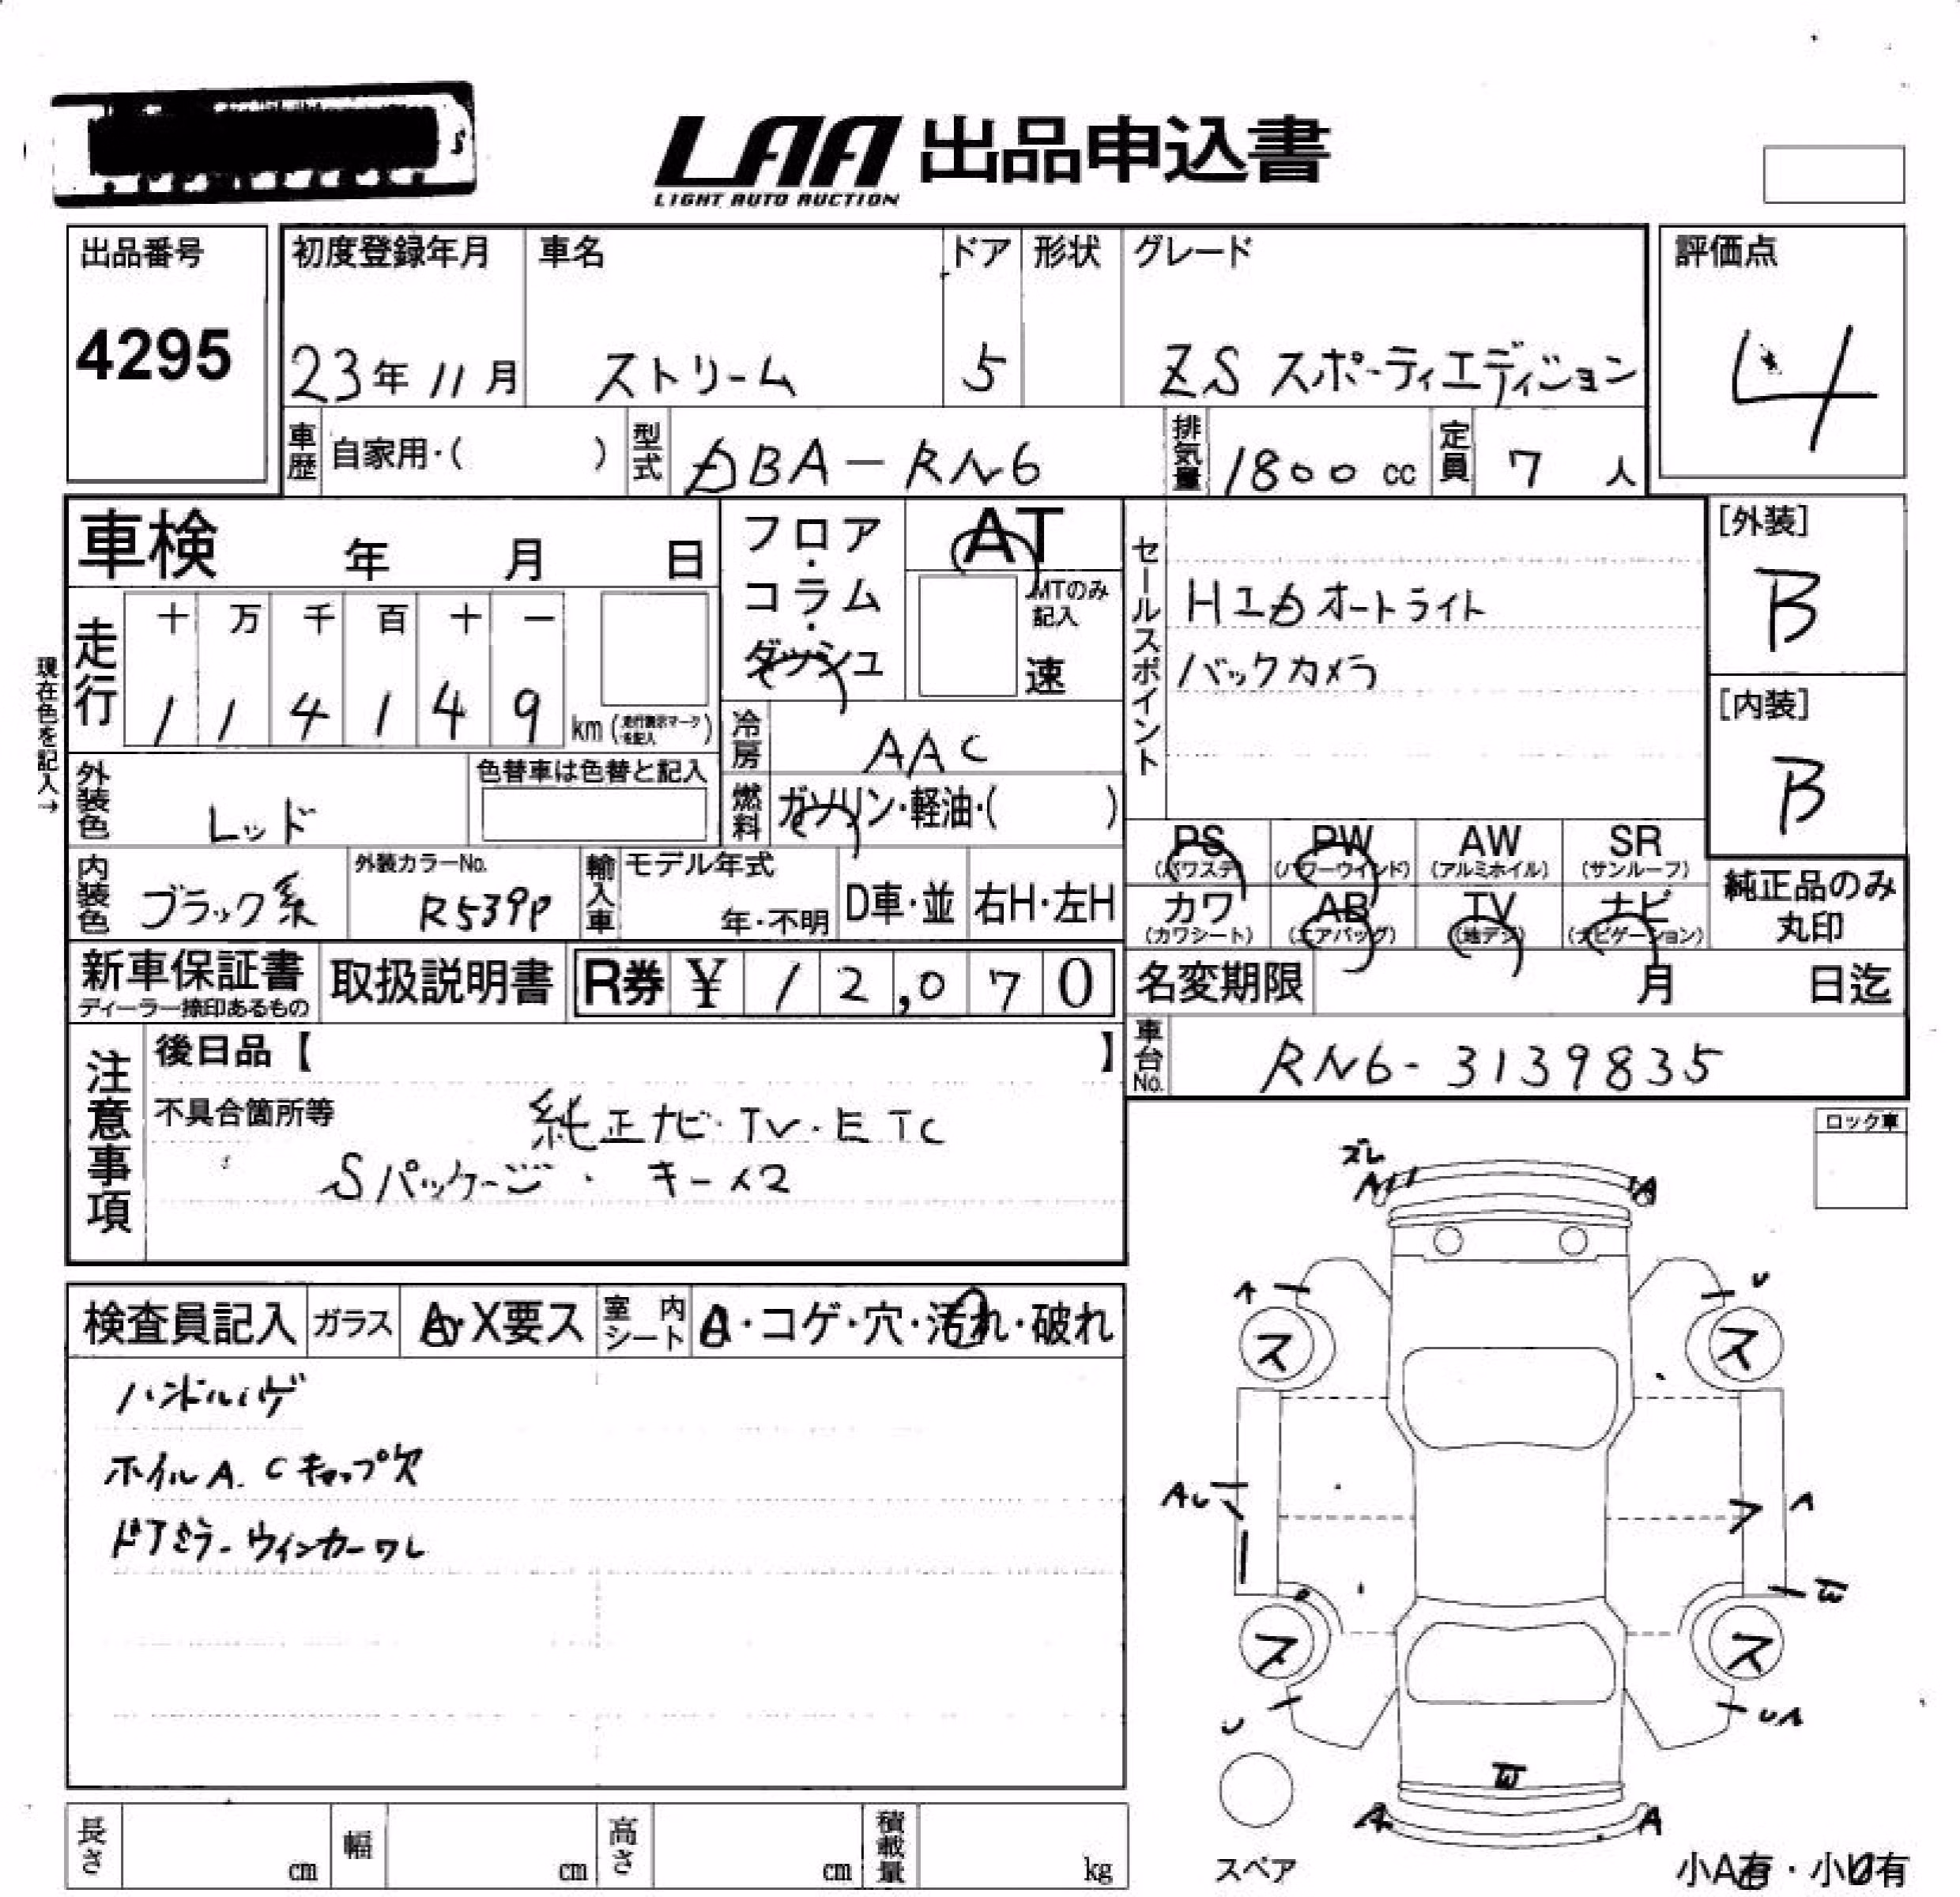 LAA 出品申込書
LIGHT AUTO AUCTION
出品番号
4295
初度登録年月
23年11月
車名
ストリーム
ドア
5
形状
グレード
ZS スポーティエディション
評価点
4
車歴 自家用・( )
型式 DBA-RN6
排気量 1800cc
定員 7人
車検 年 月 日
フロア・コラム・ダッシュ
AT
MTのみ記入
速
セールスポイント
HIDオートライト
バックカメラ
[外装]
B
[内装]
B
現在色を記入→
走行
十 万 千 百 十 一
1 1 4 1 4 9 km (走行表示マークを記入)
冷房 AAC
外装色 レッド
色替車は色替と記入
燃料 ガソリン・軽油・( )
内装色 ブラック系
外装カラーNo.
R539P
輸入車
モデル年式
年・不明
D車・並
右H・左H
PS (パワステ)
PW (パワーウィンド)
AW (アルミホイル)
SR (サンルーフ)
カワ (カワシート)
AB (エアバッグ)
TV (地デジ)
ナビ (ナビゲーション)
純正品のみ
丸印
新車保証書
ディーラー捺印あるもの
取扱説明書
R券 ¥12,070
名変期限 月 日迄
車台No. RN6-3139835
注意事項
後日品【 】
不具合箇所等
純正ナビ・TV・ETC
Sパッケージ・キー×2
ロック車
検査員記入
ガラス A・X要ス
室内シート A・コゲ・穴・汚れ・破れ
ハンドルハゲ
ホイルA.Cキャップ欠
ドアミラーウィンカーワレ
ズレ
A A
A U
ス ス
AU A
W
ス ス
U UA
W
A A
スペア
小A有・小U有
長さ cm
幅 cm
高さ cm
積載量 kg